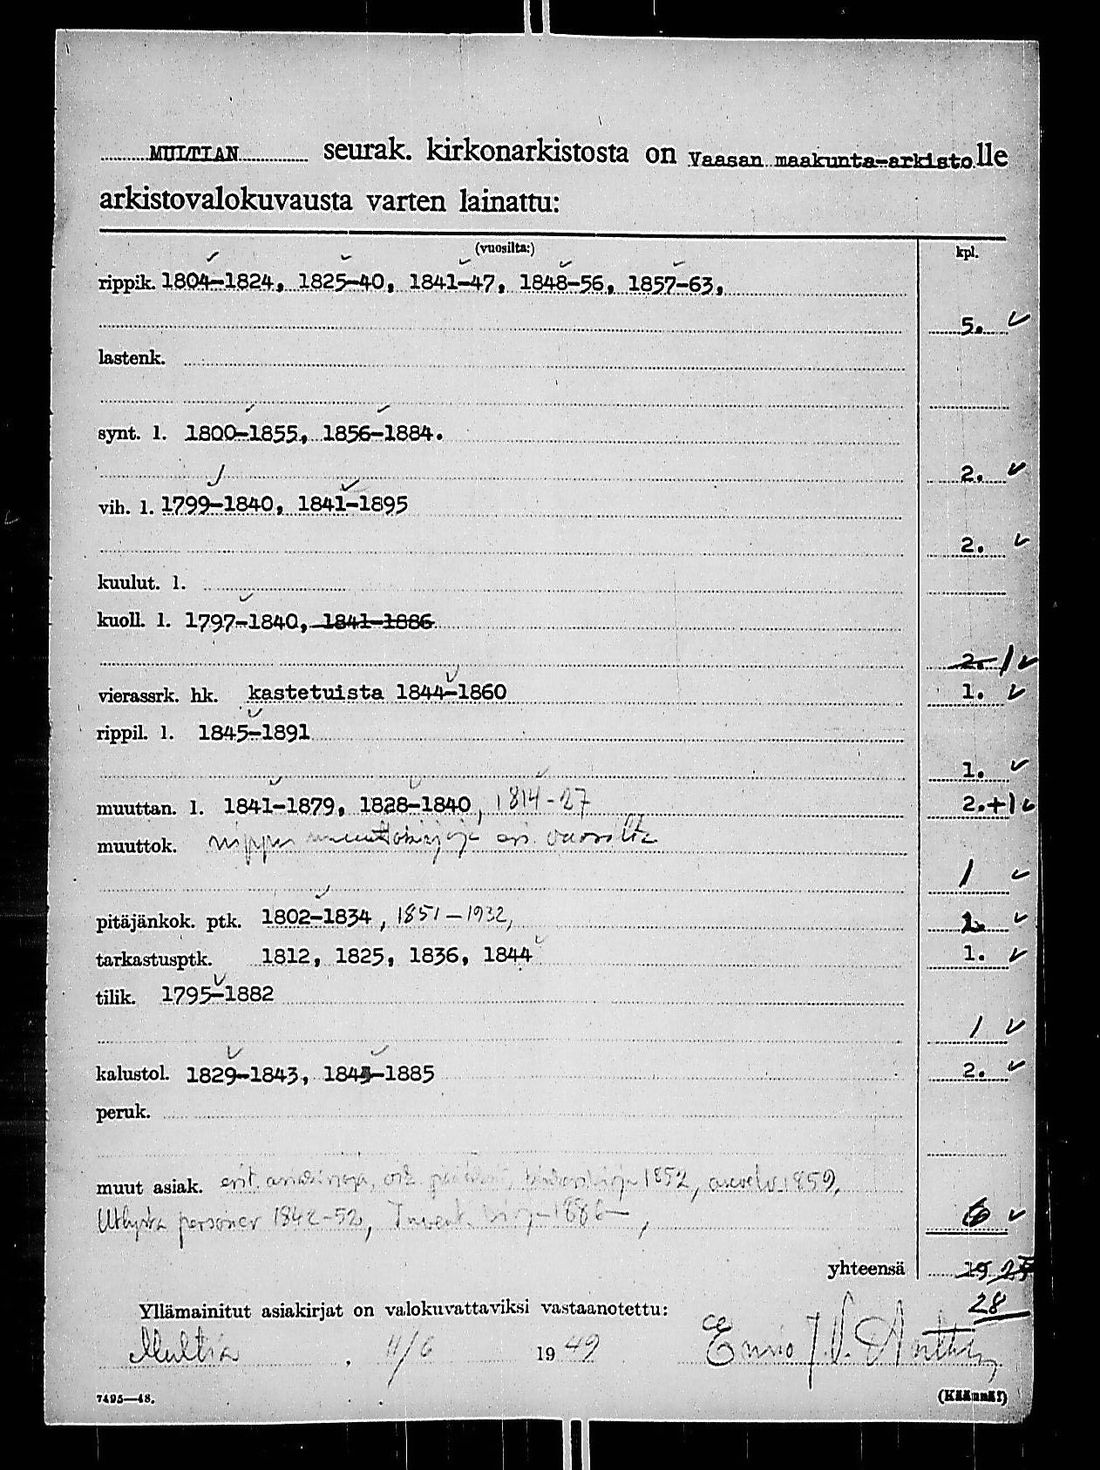 MULTIAN seurak. kirkonarkistosta on Vaasan maakunta-arkistolle
arkistovalokuvausta varten lainattu:
(vuosilta:) kpl.
rippik. 1804-1824, 1825-40, 1841-47, 1848-56, 1857-63,
5. ✓
lastenk.
synt. l. 1800-1855, 1856-1884.
2. ✓
vih. l. 1799-1840, 1841-1895
2. ✓
kuulut. l.
kuoll. l. 1797-1840, 1841-1886
2. 1 ✓
vierassrk. hk. kastetuista 1844-1860 1. ✓
rippil. l. 1845-1891
1. ✓
muuttan. l. 1841-1879, 1828-1840, 1814-27 2.+1 ✓
muuttok. nippu muuttokirjoja eri vuosilta
1 ✓
pitäjänkok. ptk. 1802-1834, 1851-1932, ✓
tarkastusptk. 1812, 1825, 1836, 1844 1. ✓
tilik. 1795-1882
1 ✓
kalustol. 1829-1843, 1843-1885 2. ✓
peruk.
muut asiak. erit. asiakirjoja, 1852, 1859,
Utlysta personer 1842-52, Invent. 1886, 6 ✓
yhteensä 19 25
28
Yllämainitut asiakirjat on valokuvattaviksi vastaanotettu:
Multia. 11/6 1949
7495—48. (Käännä!)